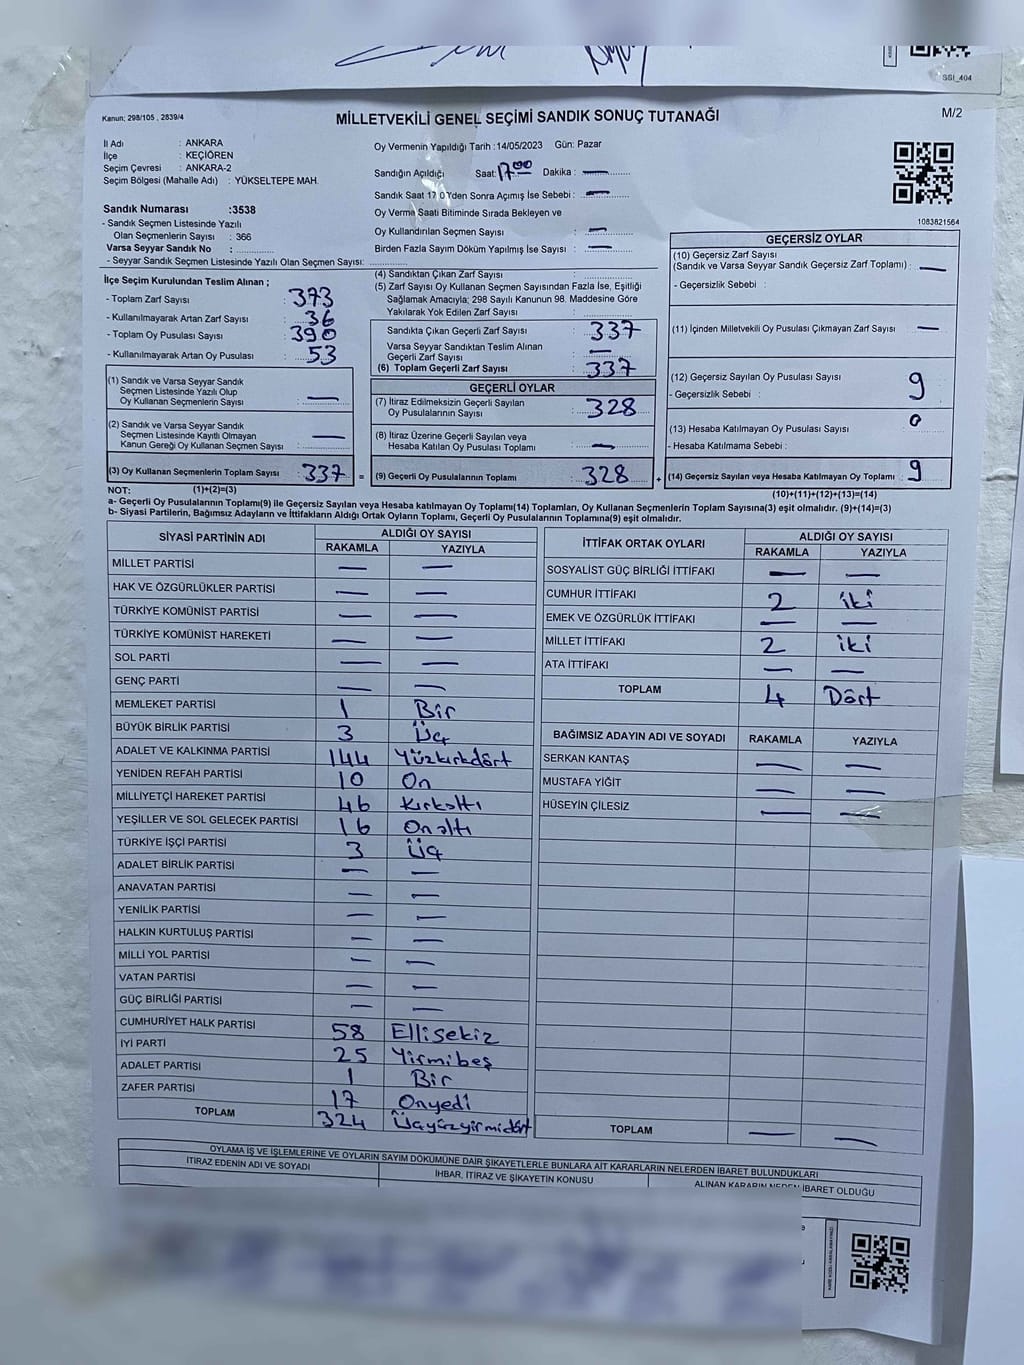 SSI_404
Kanun; 298/105 , 2839/4
MİLLETVEKİLİ GENEL SEÇİMİ SANDIK SONUÇ TUTANAĞI
M/2
İl Adı : ANKARA
İlçe : KEÇİÖREN
Seçim Çevresi : ANKARA-2
Seçim Bölgesi (Mahalle Adı) : YÜKSELTEPE MAH.
Sandık Numarası :3538
- Sandık Seçmen Listesinde Yazılı
Olan Seçmenlerin Sayısı : 366
Varsa Seyyar Sandık No :
- Seyyar Sandık Seçmen Listesinde Yazılı Olan Seçmen Sayısı:
Oy Vermenin Yapıldığı Tarih :14/05/2023 Gün: Pazar
Sandığın Açıldığı Saat: 17.00 Dakika : —
Sandık Saat 17.00'den Sonra Açımış İse Sebebi : —
Oy Verme Saati Bitiminde Sırada Bekleyen ve
Oy Kullandırılan Seçmen Sayısı : —
Birden Fazla Sayım Döküm Yapılmış İse Sayısı : —
1083821564
İlçe Seçim Kurulundan Teslim Alınan ;
- Toplam Zarf Sayısı : 373
- Kullanılmayarak Artan Zarf Sayısı : 36
- Toplam Oy Pusulası Sayısı : 390
- Kullanılmayarak Artan Oy Pusulası : 53
(1) Sandık ve Varsa Seyyar Sandık
Seçmen Listesinde Yazılı Olup
Oy Kullanan Seçmenlerin Sayısı : —
(2) Sandık ve Varsa Seyyar Sandık
Seçmen Listesinde Kayıtlı Olmayan
Kanun Gereği Oy Kullanan Seçmen Sayısı : —
(3) Oy Kullanan Seçmenlerin Toplam Sayısı : 337 =
(1)+(2)=(3)
(4) Sandıktan Çıkan Zarf Sayısı :
(5) Zarf Sayısı Oy Kullanan Seçmen Sayısından Fazla İse, Eşitliği
Sağlamak Amacıyla; 298 Sayılı Kanunun 98. Maddesine Göre
Yakılarak Yok Edilen Zarf Sayısı :
Sandıkta Çıkan Geçerli Zarf Sayısı : 337
Varsa Seyyar Sandıktan Teslim Alınan
Geçerli Zarf Sayısı : —
(6) Toplam Geçerli Zarf Sayısı : 337
GEÇERLİ OYLAR
(7) İtiraz Edilmeksizin Geçerli Sayılan
Oy Pusulalarının Sayısı : 328
(8) İtiraz Üzerine Geçerli Sayılan veya
Hesaba Katılan Oy Pusulası Toplamı : —
(9) Geçerli Oy Pusulalarının Toplamı : 328 +
GEÇERSİZ OYLAR
(10) Geçersiz Zarf Sayısı
(Sandık ve Varsa Seyyar Sandık Geçersiz Zarf Toplamı) : —
- Geçersizlik Sebebi :
(11) İçinden Milletvekili Oy Pusulası Çıkmayan Zarf Sayısı : —
(12) Geçersiz Sayılan Oy Pusulası Sayısı : 9
- Geçersizlik Sebebi :
(13) Hesaba Katılmayan Oy Pusulası Sayısı : 0
- Hesaba Katılmama Sebebi :
(14) Geçersiz Sayılan veya Hesaba Katılmayan Oy Toplamı : 9
(10)+(11)+(12)+(13)=(14)
NOT:
a- Geçerli Oy Pusulalarının Toplamı(9) ile Geçersiz Sayılan veya Hesaba Katılmayan Oy Toplamı(14) Toplamları, Oy Kullanan Seçmenlerin Toplam Sayısına(3) eşit olmalıdır. (9)+(14)=(3)
b- Siyasi Partilerin, Bağımsız Adayların ve İttifakların Aldığı Ortak Oyların Toplamı, Geçerli Oy Pusulalarının Toplamına(9) eşit olmalıdır.
SİYASİ PARTİNİN ADI ALDIĞI OY SAYISI
RAKAMLA YAZIYLA
MİLLET PARTİSİ — —
HAK VE ÖZGÜRLÜKLER PARTİSİ — —
TÜRKİYE KOMÜNİST PARTİSİ — —
TÜRKİYE KOMÜNİST HAREKETİ — —
SOL PARTİ — —
GENÇ PARTİ — —
MEMLEKET PARTİSİ 1 Bir
BÜYÜK BİRLİK PARTİSİ 3 Üç
ADALET VE KALKINMA PARTİSİ 144 Yüzkırkdört
YENİDEN REFAH PARTİSİ 10 On
MİLLİYETÇİ HAREKET PARTİSİ 46 Kırkaltı
YEŞİLLER VE SOL GELECEK PARTİSİ 16 Onaltı
TÜRKİYE İŞÇİ PARTİSİ 3 Üç
ADALET BİRLİK PARTİSİ — —
ANAVATAN PARTİSİ — —
YENİLİK PARTİSİ — —
HALKIN KURTULUŞ PARTİSİ — —
MİLLİ YOL PARTİSİ — —
VATAN PARTİSİ — —
GÜÇ BİRLİĞİ PARTİSİ — —
CUMHURİYET HALK PARTİSİ 58 Ellisekiz
İYİ PARTİ 25 Yirmibeş
ADALET PARTİSİ 1 Bir
ZAFER PARTİSİ 17 Onyedi
TOPLAM 324 Üçyüzyirmidört
İTTİFAK ORTAK OYLARI ALDIĞI OY SAYISI
RAKAMLA YAZIYLA
SOSYALİST GÜÇ BİRLİĞİ İTTİFAKI — —
CUMHUR İTTİFAKI 2 iki
EMEK VE ÖZGÜRLÜK İTTİFAKI — —
MİLLET İTTİFAKI 2 iki
ATA İTTİFAKI — —
TOPLAM 4 Dört
BAĞIMSIZ ADAYIN ADI VE SOYADI RAKAMLA YAZIYLA
SERKAN KANTAŞ — —
MUSTAFA YİĞİT — —
HÜSEYİN ÇİLESİZ — —
TOPLAM — —
OYLAMA İŞ VE İŞLEMLERİNE VE OYLARIN SAYIM DÖKÜMÜNE DAİR ŞİKAYETLERLE BUNLARA AİT KARARLARIN NELERDEN İBARET BULUNDUKLARI
İTİRAZ EDENİN ADI VE SOYADI İHBAR, İTİRAZ VE ŞİKAYETİN KONUSU ALINAN KARARIN NEDEN İBARET OLDUĞU